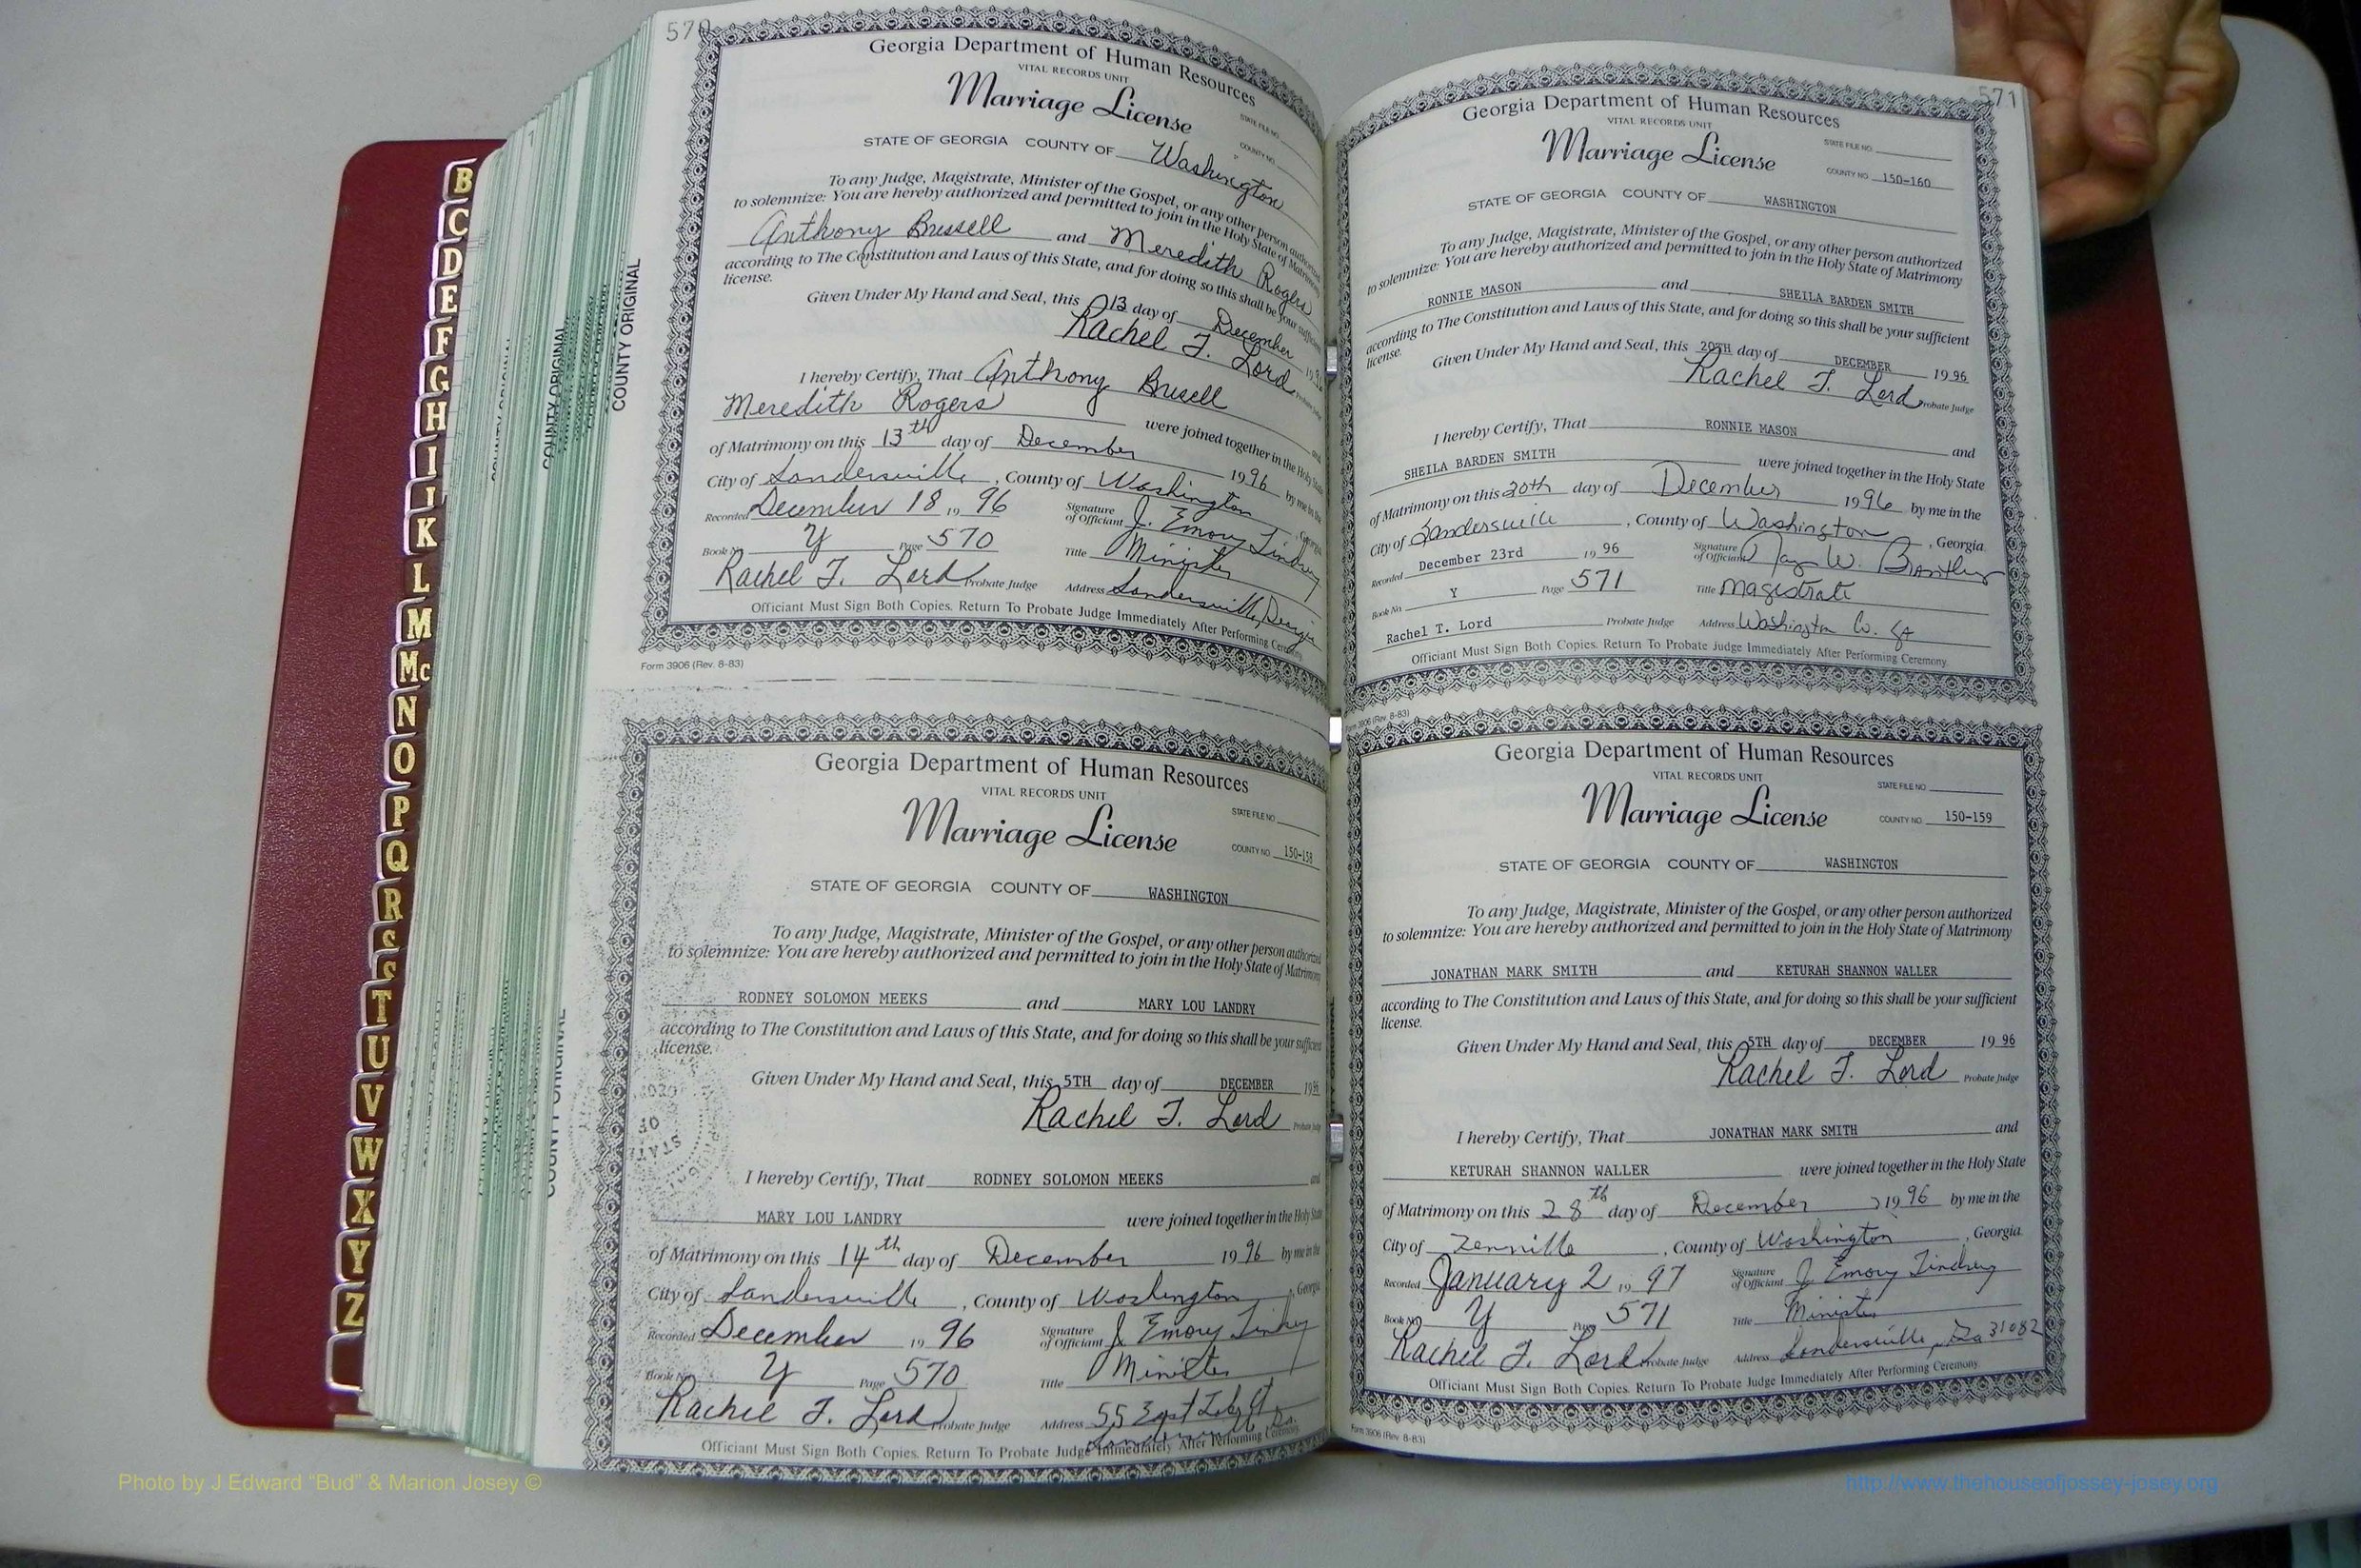 570
Georgia Department of Human Resources
VITAL RECORDS UNIT
Marriage License
STATE FILE NO.
COUNTY NO.
STATE OF GEORGIA COUNTY OF Washington
To any Judge, Magistrate, Minister of the Gospel, or any other person authorized
to solemnize: You are hereby authorized and permitted to join in the Holy State of Matrimony
Anthony Brusell and Meredith Rogers
according to The Constitution and Laws of this State, and for doing so this shall be your sufficient
license.
Given Under My Hand and Seal, this 13 day of December 19
Rachel T. Lord Probate Judge
I hereby Certify, That Anthony Brusell and
Meredith Rogers were joined together in the Holy State
of Matrimony on this 13th day of December 1996 by me in the
City of Sandersville, County of Washington, Georgia
Recorded December 18 1996 Signature of Officiant J. Emory Lindsey
Book No. Y Page 570 Title Minister
Rachel T. Lord Probate Judge Address Sandersville, Georgia
Officiant Must Sign Both Copies. Return To Probate Judge Immediately After Performing Ceremony
Form 3906 (Rev. 8-83)
COUNTY ORIGINAL
Georgia Department of Human Resources
VITAL RECORDS UNIT
Marriage License
STATE FILE NO.
COUNTY NO. 150-158
STATE OF GEORGIA COUNTY OF WASHINGTON
To any Judge, Magistrate, Minister of the Gospel, or any other person authorized
to solemnize: You are hereby authorized and permitted to join in the Holy State of Matrimony
RODNEY SOLOMON MEEKS and MARY LOU LANDRY
according to The Constitution and Laws of this State, and for doing so this shall be your sufficient
license.
Given Under My Hand and Seal, this 5TH day of DECEMBER 1996
Rachel T. Lord Probate Judge
I hereby Certify, That RODNEY SOLOMON MEEKS and
MARY LOU LANDRY were joined together in the Holy State
of Matrimony on this 14th day of December 1996 by me in the
City of Sandersville, County of Washington, Georgia
Recorded December 1996 Signature of Officiant J. Emory Lindsey
Book No. Y Page 570 Title Minister
Rachel T. Lord Probate Judge Address 55 East
Sandersville Ga.
Officiant Must Sign Both Copies. Return To Probate Judge Immediately After Performing Ceremony
571
Georgia Department of Human Resources
VITAL RECORDS UNIT
Marriage License
STATE FILE NO.
COUNTY NO. 150-160
STATE OF GEORGIA COUNTY OF WASHINGTON
To any Judge, Magistrate, Minister of the Gospel, or any other person authorized
to solemnize: You are hereby authorized and permitted to join in the Holy State of Matrimony
RONNIE MASON and SHEILA BARDEN SMITH
according to The Constitution and Laws of this State, and for doing so this shall be your sufficient
license.
Given Under My Hand and Seal, this 20TH day of DECEMBER 1996
Rachel T. Lord Probate Judge
I hereby Certify, That RONNIE MASON and
SHEILA BARDEN SMITH were joined together in the Holy State
of Matrimony on this 20th day of December 1996 by me in the
City of Sandersville, County of Washington, Georgia
Recorded December 23rd 1996 Signature of Officiant W. Brantley
Book No. Y Page 571 Title Magistrate
Rachel T. Lord Probate Judge Address Washington Co. GA
Officiant Must Sign Both Copies. Return To Probate Judge Immediately After Performing Ceremony
Form 3906 (Rev. 8-83)
Georgia Department of Human Resources
VITAL RECORDS UNIT
Marriage License
STATE FILE NO.
COUNTY NO. 150-159
STATE OF GEORGIA COUNTY OF WASHINGTON
To any Judge, Magistrate, Minister of the Gospel, or any other person authorized
to solemnize: You are hereby authorized and permitted to join in the Holy State of Matrimony
JONATHAN MARK SMITH and KETURAH SHANNON WALLER
according to The Constitution and Laws of this State, and for doing so this shall be your sufficient
license.
Given Under My Hand and Seal, this 5TH day of DECEMBER 1996
Rachel T. Lord Probate Judge
I hereby Certify, That JONATHAN MARK SMITH and
KETURAH SHANNON WALLER were joined together in the Holy State
of Matrimony on this 28th day of December 1996 by me in the
City of Tennille, County of Washington, Georgia
Recorded January 2 1997 Signature of Officiant J. Emory Lindsey
Book No. Y Page 571 Title Minister
Rachel T. Lord Probate Judge Address Sandersville, Ga 31082
Officiant Must Sign Both Copies. Return To Probate Judge Immediately After Performing Ceremony
Form 3906 (Rev. 8-83)
COUNTY ORIGINAL
COUNTY ORIGINAL
B
C
D
E
F
G
H
I
J
K
L
M
Mc
N
O
P
Q
R
S
S
T
U
V
W
X
Y
Z
Photo by J Edward “Bud” & Marion Josey ©
http://www.thehouseofjossey-josey.org